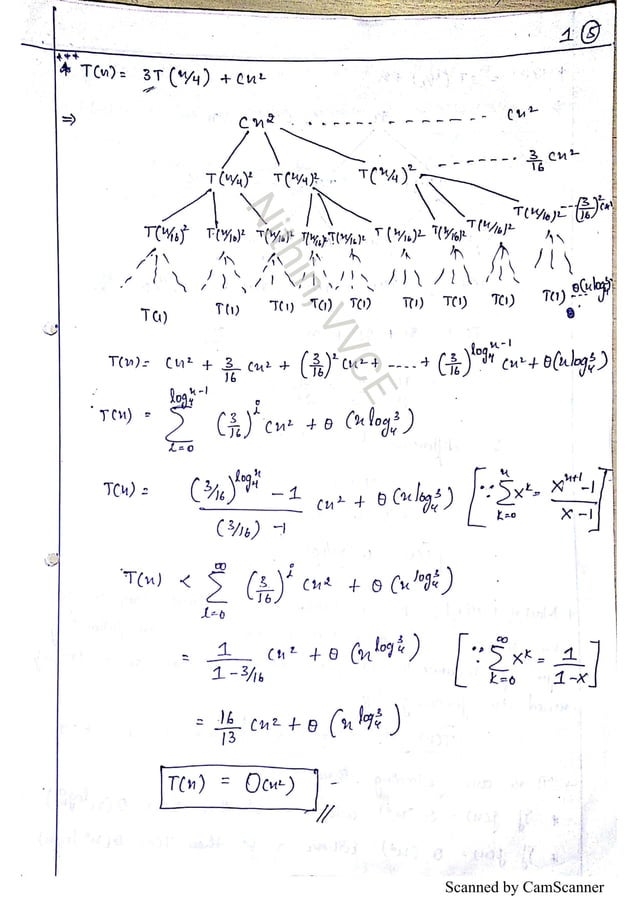 1 (5)
*** T(n) = 3T(n/4) + cn²
⇒ cn² ............ cn²
T(n/4)² T(n/4)² T(n/4)² ------- 3/16 cn²
T(n/16)² T(n/16)² T(n/16)² T(n/16)² T(n/16)² T(n/16)² T(n/16)² T(n/16)² T(n/16)² --- (3/16)² cn²
T(1) T(1) T(1) T(1) T(1) T(1) T(1) T(1) T(1) --- θ(n log₄³)
T(n) = cn² + 3/16 cn² + (3/16)² cn² + ---- + (3/16)^(log₄^(n-1)) cn² + θ(n log₄³)
T(n) = Σ_{i=0}^{log₄^(n-1)} (3/16)^i cn² + θ (n log₄³)
T(n) = ((3/16)^(log₄^n) - 1) / ((3/16) - 1) cn² + θ(n log₄³) [∵ Σ_{k=0}^{n} x^k = (x^(n+1) - 1) / (x - 1)]
T(n) < Σ_{i=0}^{∞} (3/16)^i cn² + θ(n^(log₄³))
= 1 / (1 - 3/16) cn² + θ(n^(log₄³)) [∵ Σ_{k=0}^{∞} x^k = 1 / (1 - x)]
= 16/13 cn² + θ(n^(log₄³))
T(n) = O(n²)
Nithin, VVCE
Scanned by CamScanner